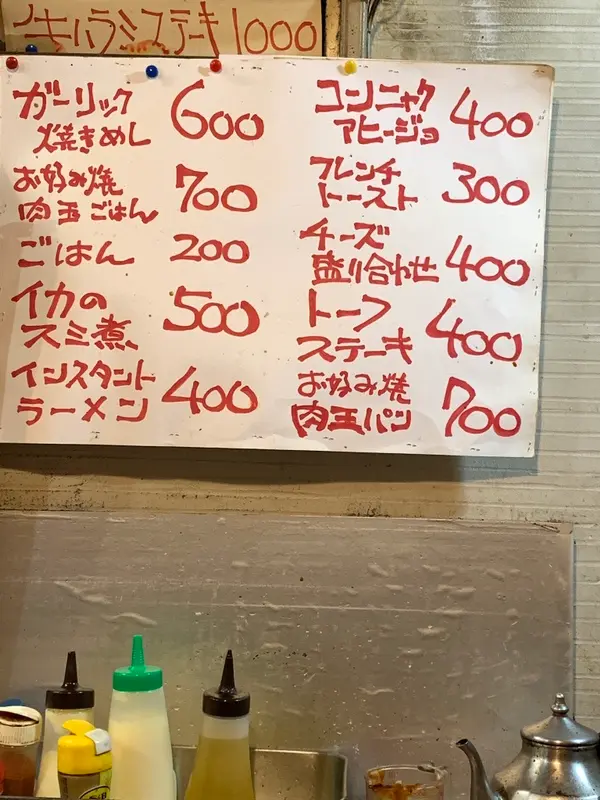 牛ハラミステーキ 1000
ガーリック
焼きめし 600
お好み焼
肉玉ごはん 700
ごはん 200
イカの
スミ煮 500
インスタント
ラーメン 400
コンニャク
アヒージョ 400
フレンチ
トースト 300
チーズ
盛り合わせ 400
トーフ
ステーキ 400
お好み焼
肉玉パン 700